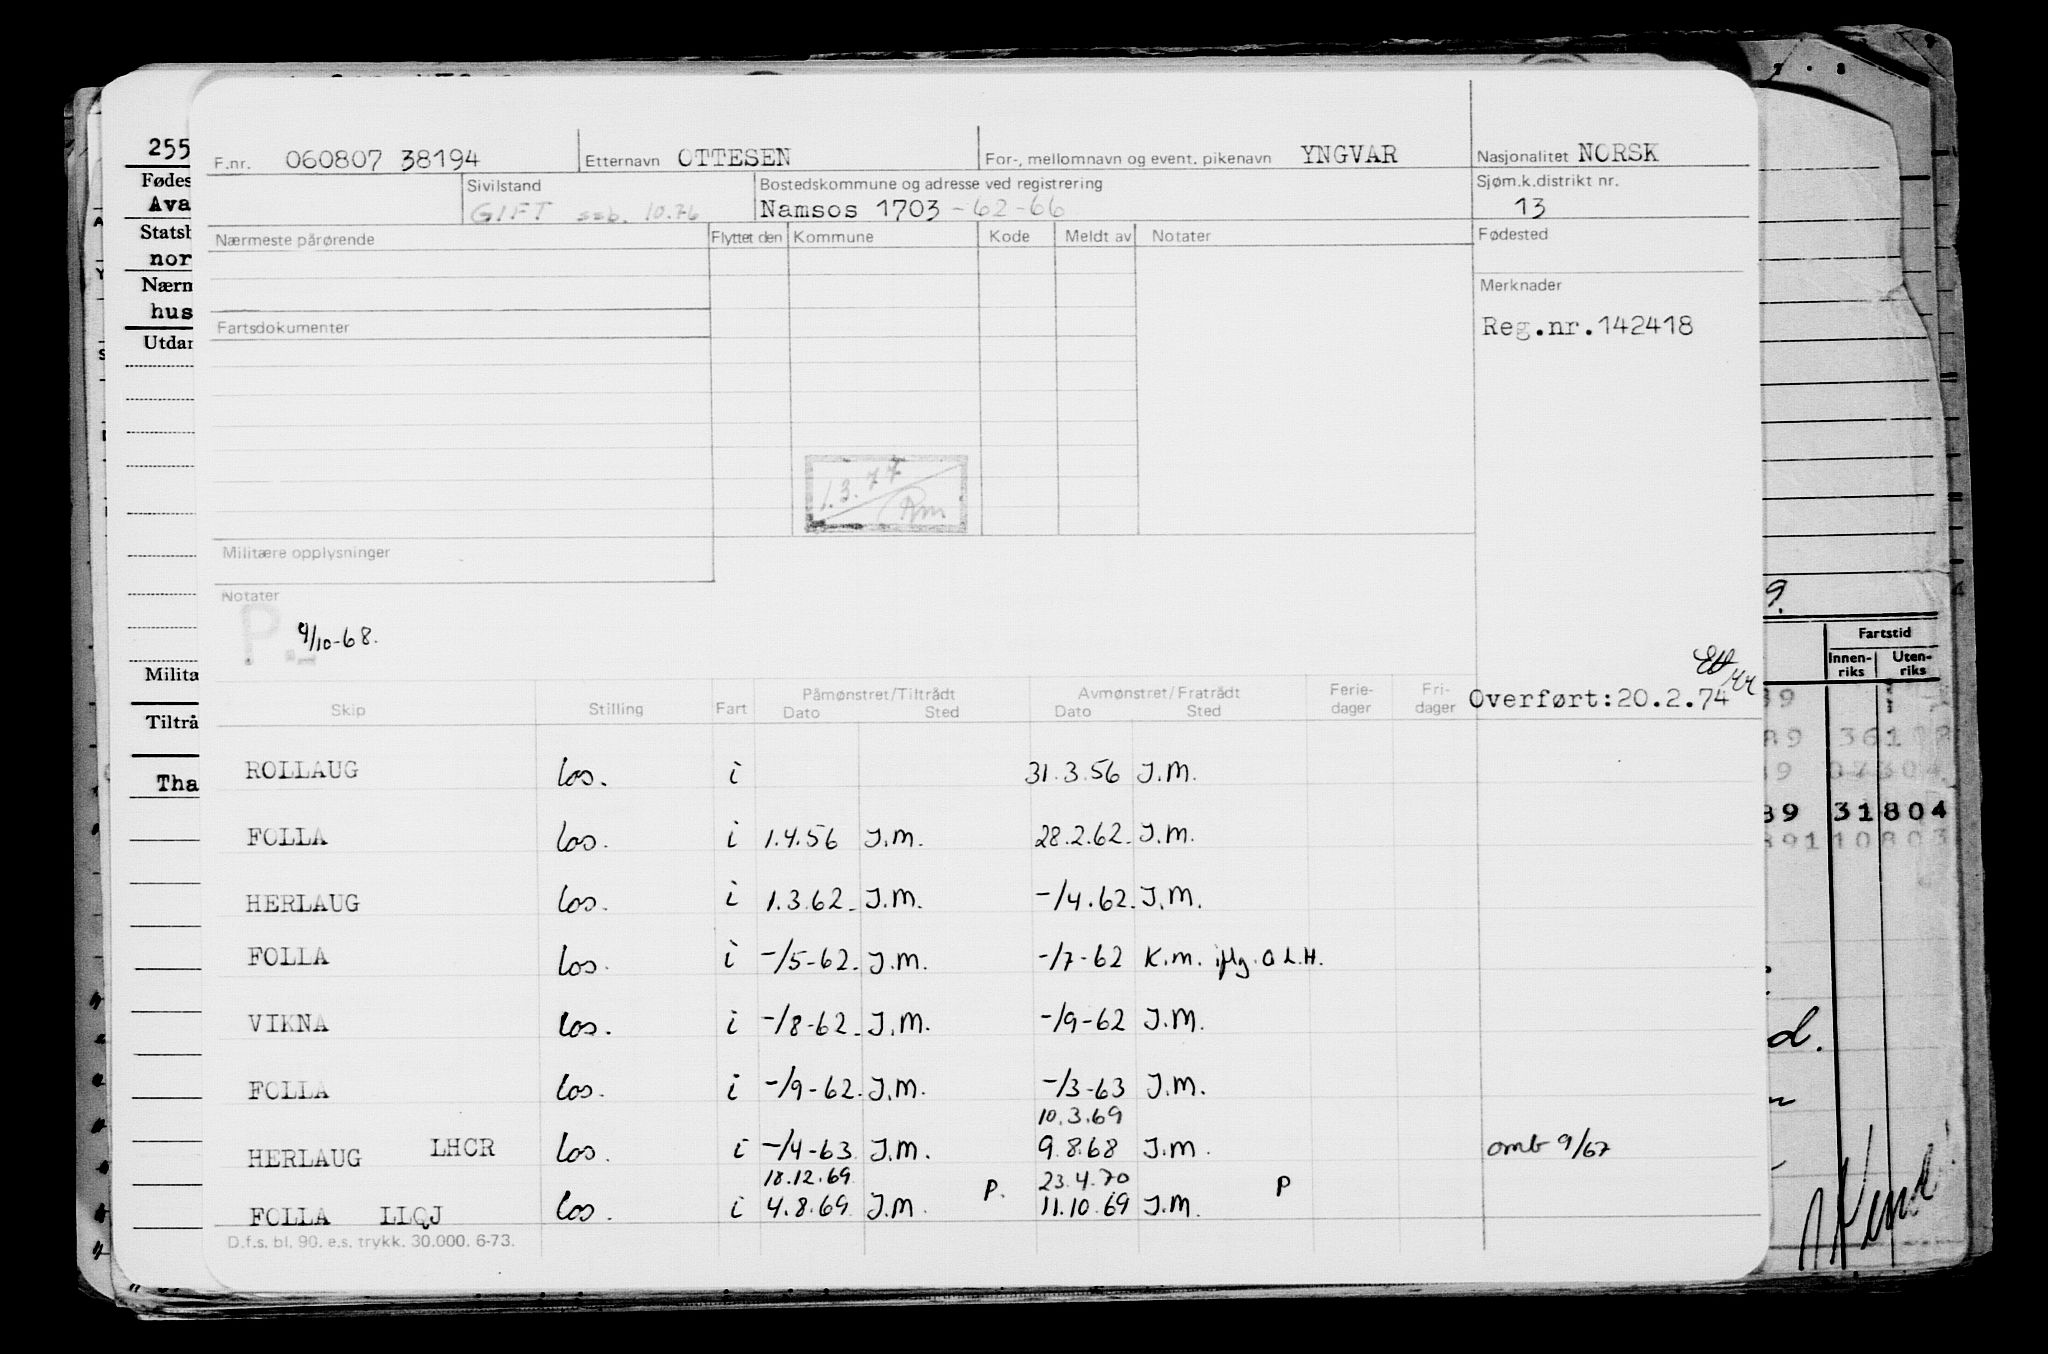 255
Fødes
Ava
Statsb
nor
Nærm
hus
Utdan
Milita
Tiltrå
Tha
F.nr. 060807 38194 Etternavn OTTESEN For-, mellomnavn og event. pikenavn YNGVAR Nasjonalitet NORSK
Sivilstand Bostedskommune og adresse ved registrering Sjøm.k.distrikt nr.
GIFT ssb. 10.76 Namsos 1703 -62-66 13
Nærmeste pårørende Flyttet den Kommune Kode Meldt av Notater Fødested
Merknader
Fartsdokumenter Reg.nr.142418
1.3.77
Rm
Militære opplysninger
Notater
P.
9/10-68.
Overført:20.2.74
Skip Stilling Fart Påmønstret/Tiltrådt Avmønstret/Fratrådt Ferie-dager Fri-dager
Dato Sted Dato Sted
ROLLAUG los. i 31.3.56 J.M.
FOLLA los. i 1.4.56 J.M. 28.2.62. J.M.
HERLAUG los. i 1.3.62. J.M. -/4.62. J.M.
FOLLA los. i -/5-62. J.M. -/7-62 K.m. iflg. O L.H.
VIKNA los. i -/8-62. J.M. -/9-62 J.M.
FOLLA los. i -/9-62. J.M. -/3-63 J.M.
10.3.69
HERLAUG LHCR los. i -/4-63 J.M. 9.8.68 J.M. omb 9/67
18.12.69 P. 23.4.70 P
FOLLA LLQJ los. i 4.8.69 J.M. 11.10.69 J.M.
D.f.s. bl. 90. e.s. trykk. 30.000. 6-73.
9.
Fartstid
Innen-riks Uten-riks
89 31804
d.